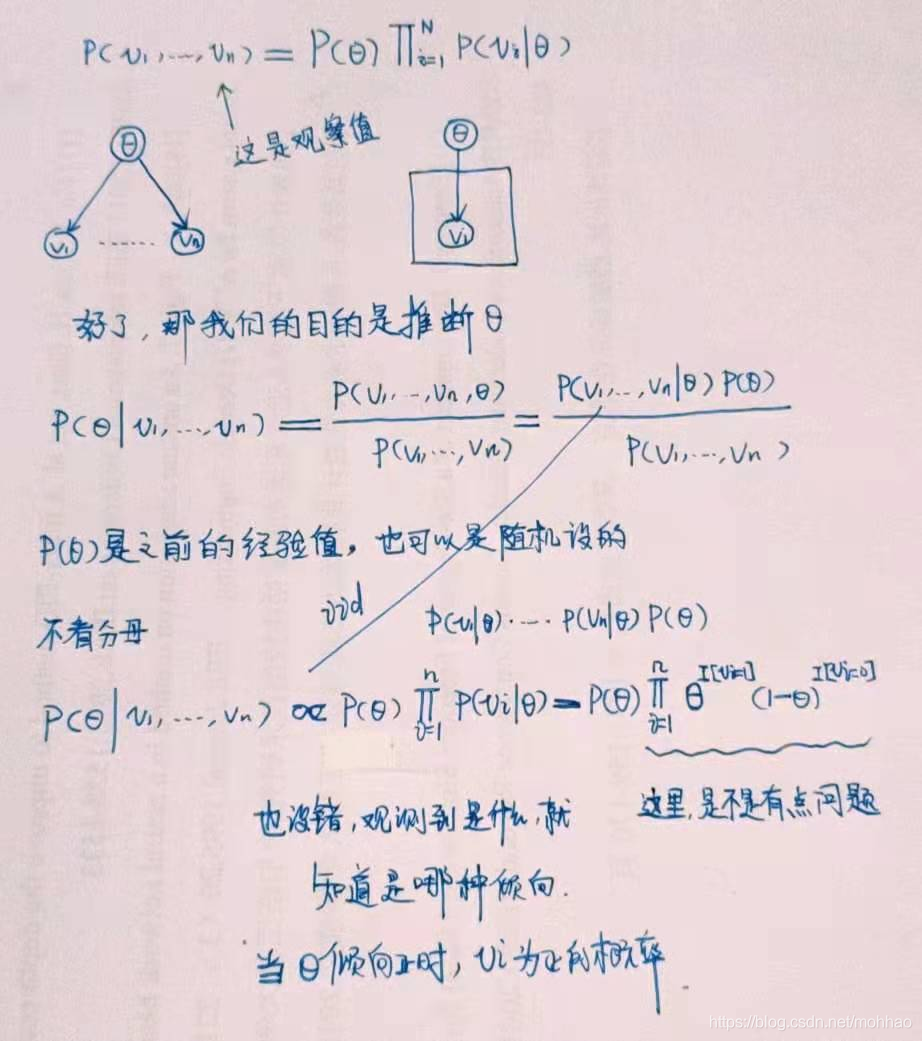 P(v₁,...,vₙ) = P(θ) ∏ᵢ₌₁ᴺ P(vᵢ|θ)
这是观察值
θ
v₁ ...... vₙ
θ
vᵢ
好了,那我们的目的是推断θ
P(θ|v₁,...,vₙ) = P(v₁,...,vₙ,θ) / P(v₁,...,vₙ) = P(v₁,...,vₙ|θ) P(θ) / P(v₁,...,vₙ)
P(θ)是之前的经验值,也可以是随机设的
不看分母
iid
P(v₁|θ)····P(vₙ|θ) P(θ)
P(θ|v₁,...,vₙ) ∝ P(θ) ∏ᵢ₌₁ⁿ P(vᵢ|θ) = P(θ) ∏ᵢ₌₁ⁿ θ^I[vᵢ=1] (1-θ)^I[vᵢ=0]
这里,是不是有点问题
也没错,观测到是什么,就
知道是哪种倾向.
当θ倾向正时,vᵢ为正的概率.
https://blog.csdn.net/mohhao